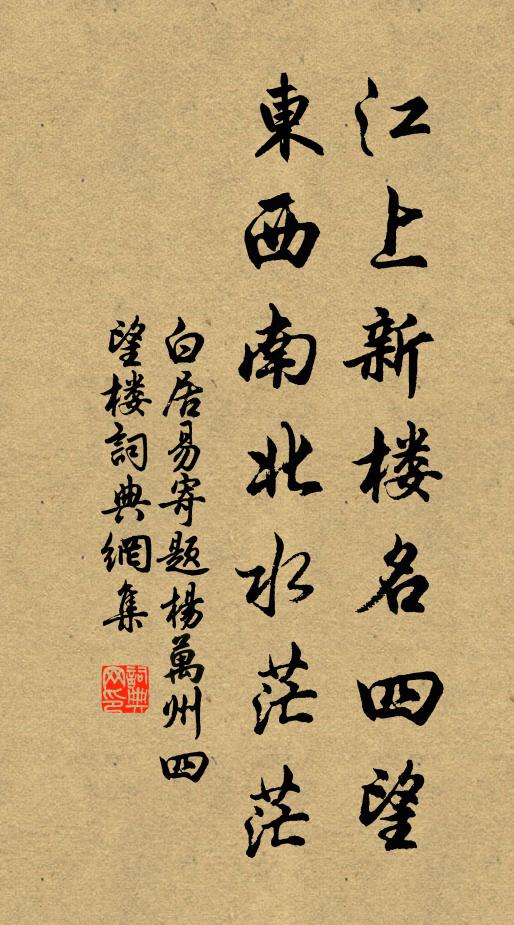 江上新楼名四望
東西南北水茫茫
白居易寄题楊萬州四
望楼詞典網集
詞典网印